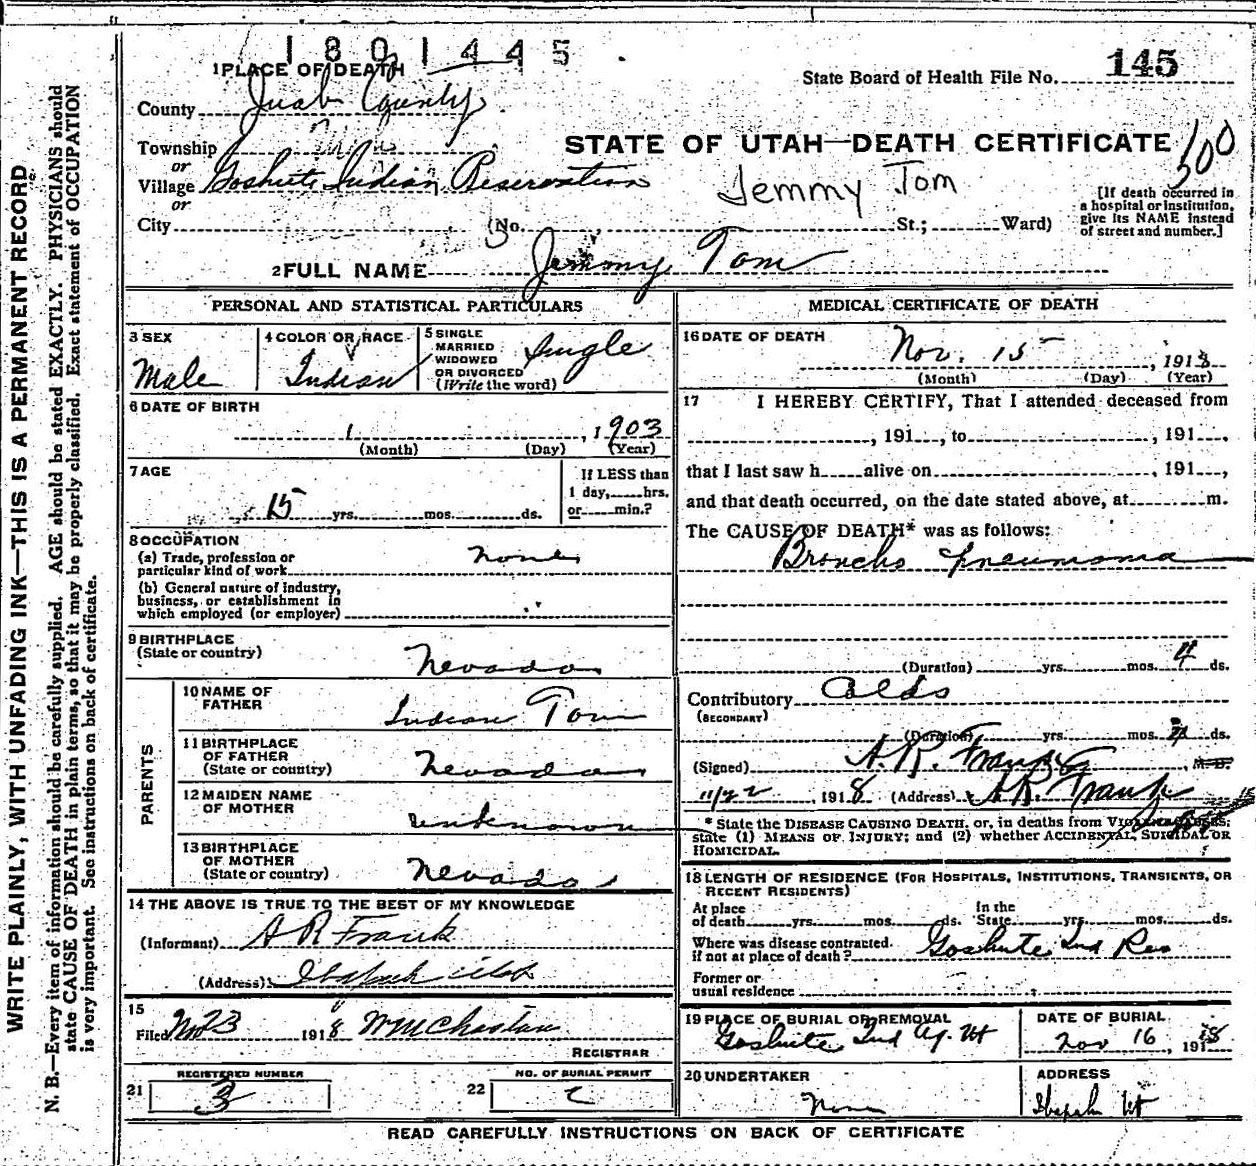 1801445
1 PLACE OF DEATH
State Board of Health File No. 145
County Juab County
STATE OF UTAH—DEATH CERTIFICATE
Township
or
Village Goshute Indian Reservation
Jemmy Tom
[If death occurred in
a hospital or institution,
give its NAME instead
of street and number.]
or
City (No. St.; Ward)
2 FULL NAME Jemmy Tom
PERSONAL AND STATISTICAL PARTICULARS
3 SEX
Male
4 COLOR OR RACE
Indian
5 SINGLE
MARRIED
WIDOWED
OR DIVORCED
(Write the word)
Single
6 DATE OF BIRTH
1, 1903
(Month) (Day) (Year)
7 AGE
15 yrs. mos. ds.
If LESS than
1 day, hrs.
or min.?
8 OCCUPATION
(a) Trade, profession or
particular kind of work none
(b) General nature of industry,
business, or establishment in
which employed (or employer)
9 BIRTHPLACE
(State or country) Nevada
PARENTS
10 NAME OF
FATHER Indian Tom
11 BIRTHPLACE
OF FATHER
(State or country) Nevada
12 MAIDEN NAME
OF MOTHER unknown
13 BIRTHPLACE
OF MOTHER
(State or country) Nevada
14 THE ABOVE IS TRUE TO THE BEST OF MY KNOWLEDGE
(Informant) A R Frank
(Address) Ibapah Utah
15
Filed Nov 23 1918 Wm Chastain
REGISTRAR
21 REGISTERED NUMBER
3
22 NO. OF BURIAL PERMIT
MEDICAL CERTIFICATE OF DEATH
16 DATE OF DEATH
Nov. 15, 1918
(Month) (Day) (Year)
17 I HEREBY CERTIFY, That I attended deceased from
, 191 , to , 191 ,
that I last saw h alive on , 191 ,
and that death occurred, on the date stated above, at m.
The CAUSE OF DEATH* was as follows:
Broncho pneumonia
(Duration) yrs. mos. 4 ds.
Contributory Colds
(SECONDARY)
(Duration) yrs. mos. ds.
(Signed) A. R. Frank, M.D.
11/22, 1918 (Address) A. R. Frank
* State the DISEASE CAUSING DEATH, or, in deaths from VIOLENT CAUSES,
state (1) MEANS OF INJURY; and (2) whether ACCIDENTAL, SUICIDAL OR
HOMICIDAL.
18 LENGTH OF RESIDENCE (FOR HOSPITALS, INSTITUTIONS, TRANSIENTS, OR
RECENT RESIDENTS)
At place
of death yrs. mos. ds.
In the
State yrs. mos. ds.
Where was disease contracted
if not at place of death? Goshute Ind Res
Former or
usual residence
19 PLACE OF BURIAL OR REMOVAL
Goshute Ind Ag. Ut
DATE OF BURIAL
Nov 16, 1918
20 UNDERTAKER
None
ADDRESS
Ibapah Ut
READ CAREFULLY INSTRUCTIONS ON BACK OF CERTIFICATE
WRITE PLAINLY, WITH UNFADING INK—THIS IS A PERMANENT RECORD
N. B.—Every item of information should be carefully supplied. AGE should be stated EXACTLY. PHYSICIANS should
state CAUSE OF DEATH in plain terms, so that it may be properly classified. Exact statement of OCCUPATION
is very important. See instructions on back of certificate.